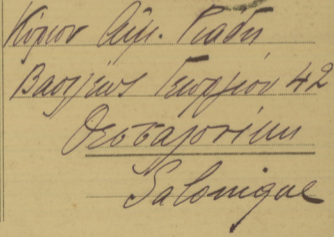 Κύριον Αἰμ. Ριάδη
Βασιλέως Γεωργίου 42
Θεσσαλονίκην
Salonique